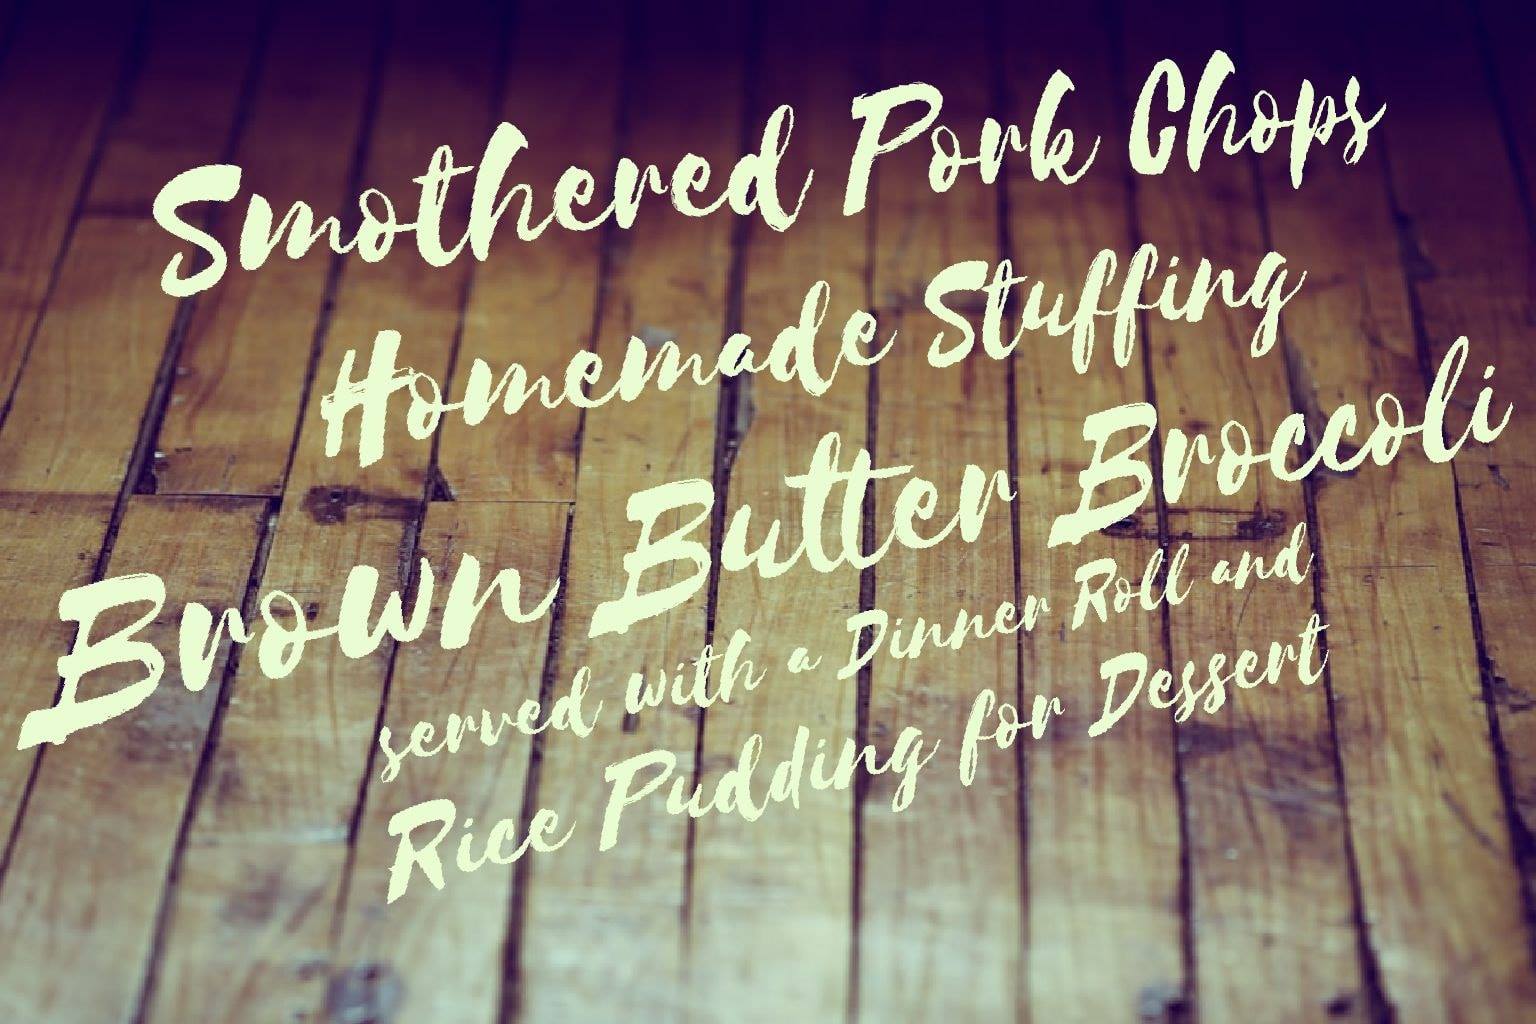 Smothered Pork Chops
Homemade Stuffing
Brown Butter Broccoli
served with a Dinner Roll and
Rice Pudding for Dessert